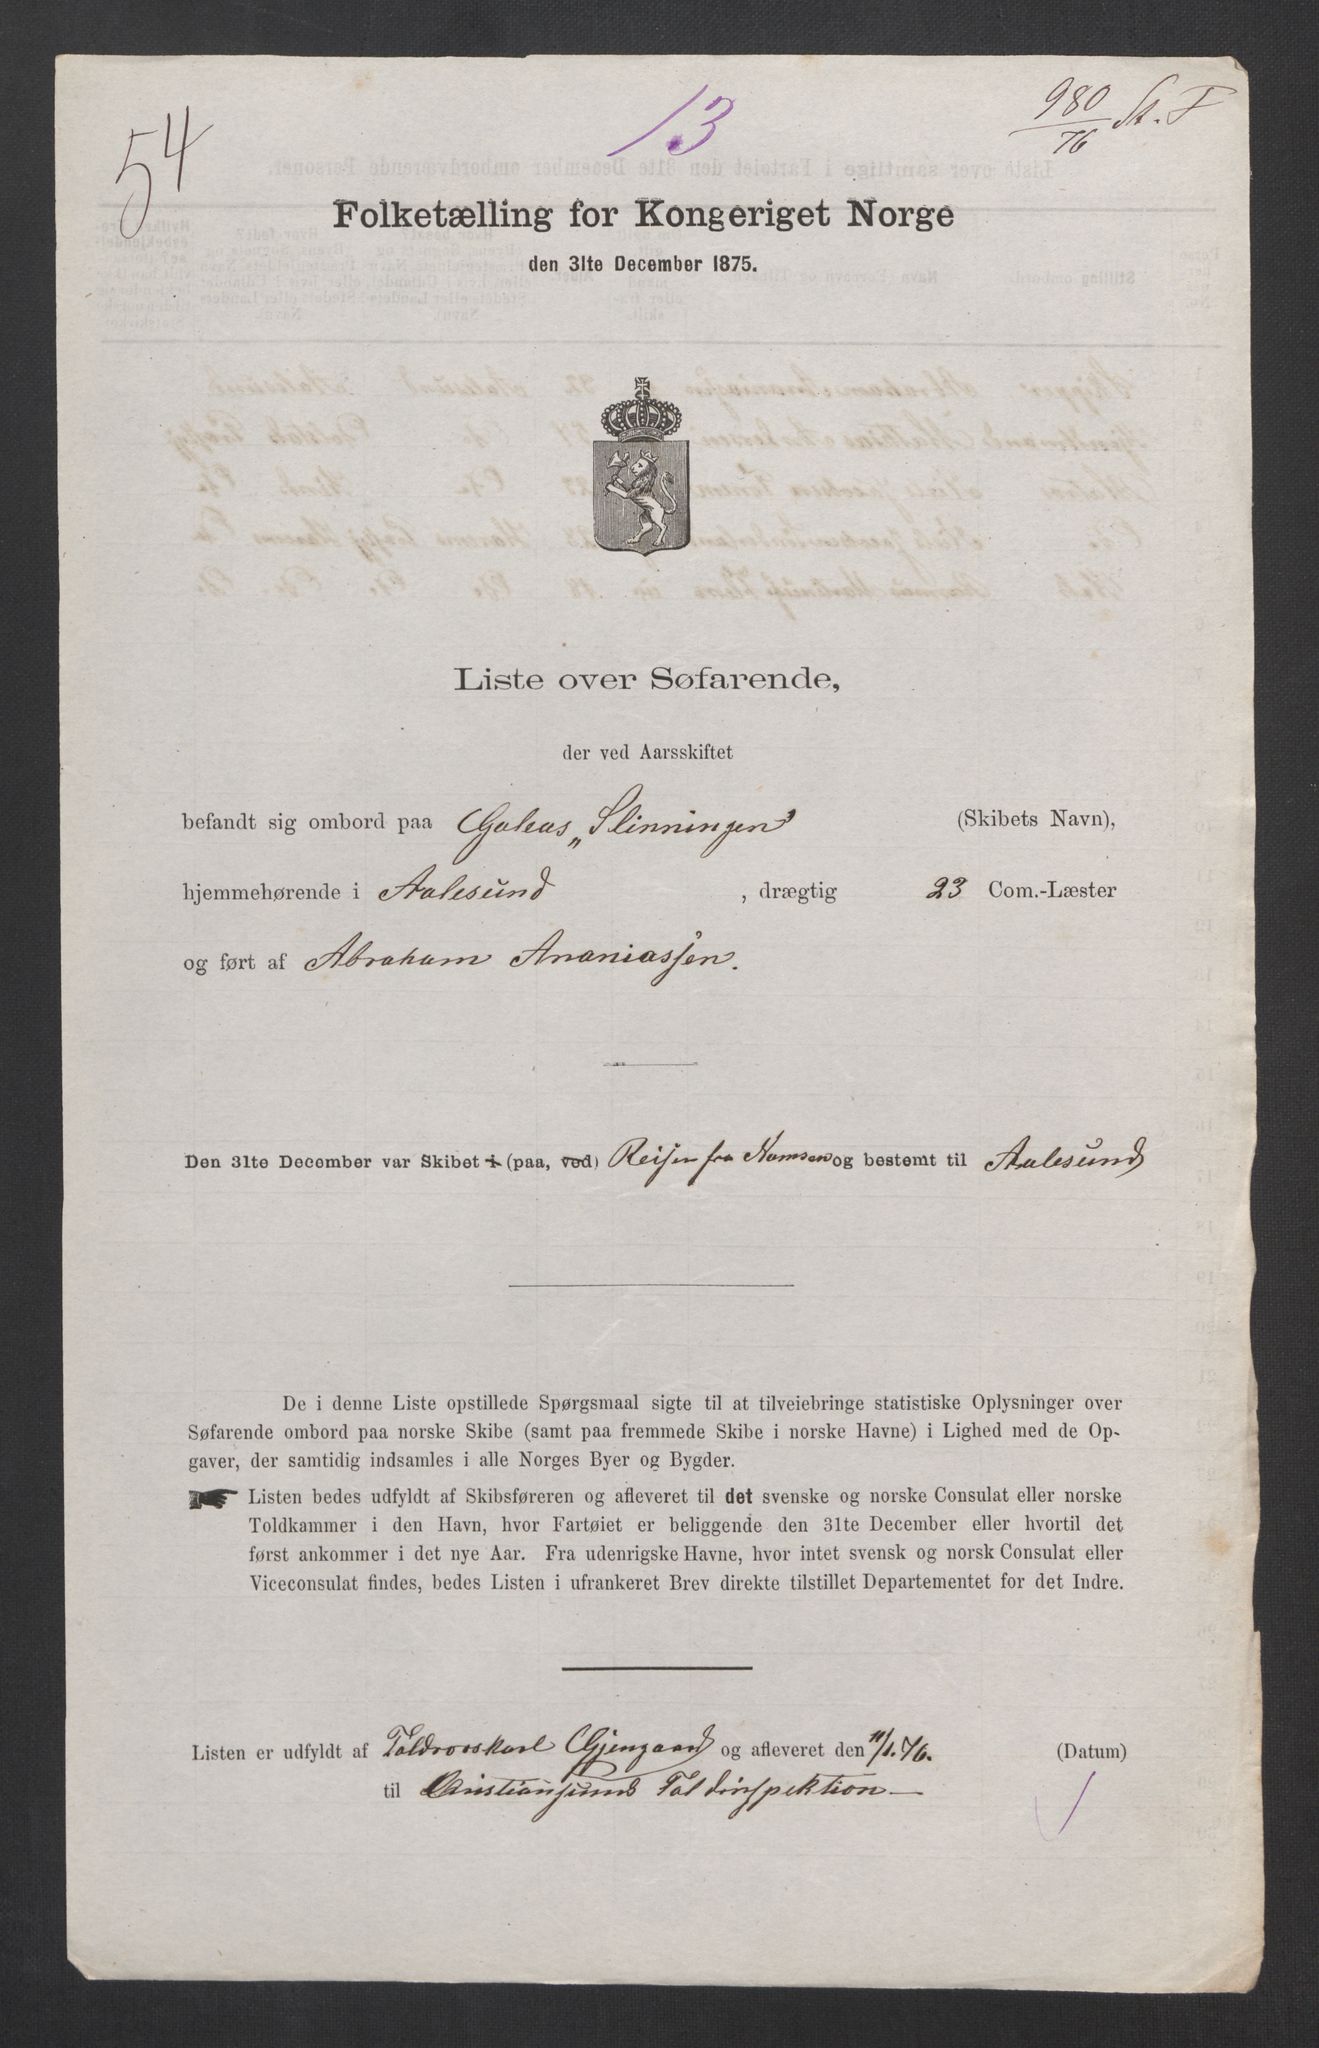 54
13
980/76 St. F
Folketælling for Kongeriget Norge
den 31te December 1875.
Liste over Søfarende,
der ved Aarsskiftet
befandt sig ombord paa Galeas „Slinningen" (Skibets Navn),
hjemmehørende i Aalesund, drægtig 23 Com.-Læster
og ført af Abraham Ananiassen.
Den 31te December var Skibet i (paa, ved) Reisen fra Namsen og bestemt til Aalesund
De i denne Liste opstillede Spørgsmaal sigte til at tilveiebringe statistiske Oplysninger over
Søfarende ombord paa norske Skibe (samt paa fremmede Skibe i norske Havne) i Lighed med de Op-
gaver, der samtidig indsamles i alle Norges Byer og Bygder.
Listen bedes udfyldt af Skibsføreren og afleveret til det svenske og norske Consulat eller norske
Toldkammer i den Havn, hvor Fartøiet er beliggende den 31te December eller hvortil det
først ankommer i det nye Aar. Fra udenrigske Havne, hvor intet svensk og norsk Consulat eller
Viceconsulat findes, bedes Listen i ufrankeret Brev direkte tilstillet Departementet for det Indre.
Listen er udfyldt af Toldroerskarl Gjengaard og afleveret den 11/1. 76. (Datum)
til Christiansunds Toldinspektion